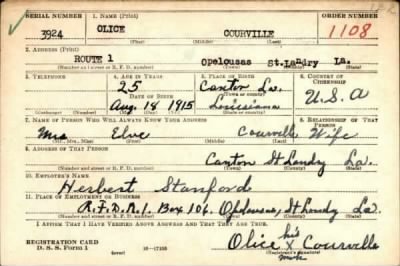 SERIAL NUMBER 1. NAME (Print) ORDER NUMBER
3924 OLICE COURVILLE 1108
(First) (Middle) (Last)
2. ADDRESS (Print)
ROUTE 1 Opelousas St. Landry La.
(Number and street or R. F. D. number) (Town) (County) (State)
3. TELEPHONE 4. AGE IN YEARS 5. PLACE OF BIRTH 6. COUNTRY OF CITIZENSHIP
25 Canton La.
DATE OF BIRTH (Town or county)
Aug. 18 1915 Louisiana U.S.A
(Exchange) (Number) (Mo.) (Day) (Yr.) (State or country)
7. NAME OF PERSON WHO WILL ALWAYS KNOW YOUR ADDRESS 8. RELATIONSHIP OF THAT PERSON
Mrs Elve Courville Wife
(Mr., Mrs., Miss) (First) (Middle) (Last)
9. ADDRESS OF THAT PERSON
Canton St Landry La.
(Number and street or R. F. D. number) (Town) (County) (State)
10. EMPLOYER'S NAME
Herbert Stanford
11. PLACE OF EMPLOYMENT OR BUSINESS
R.F.D. No. 1, Box 106. Opelousas, St Landry La.
(Number and street or R. F. D. number) (Town) (County) (State)
I AFFIRM THAT I HAVE VERIFIED ABOVE ANSWERS AND THAT THEY ARE TRUE.
REGISTRATION CARD his
D. S. S. Form 1 (over) 16-17105 Olice X Courville
(Registrant's signature)
mark